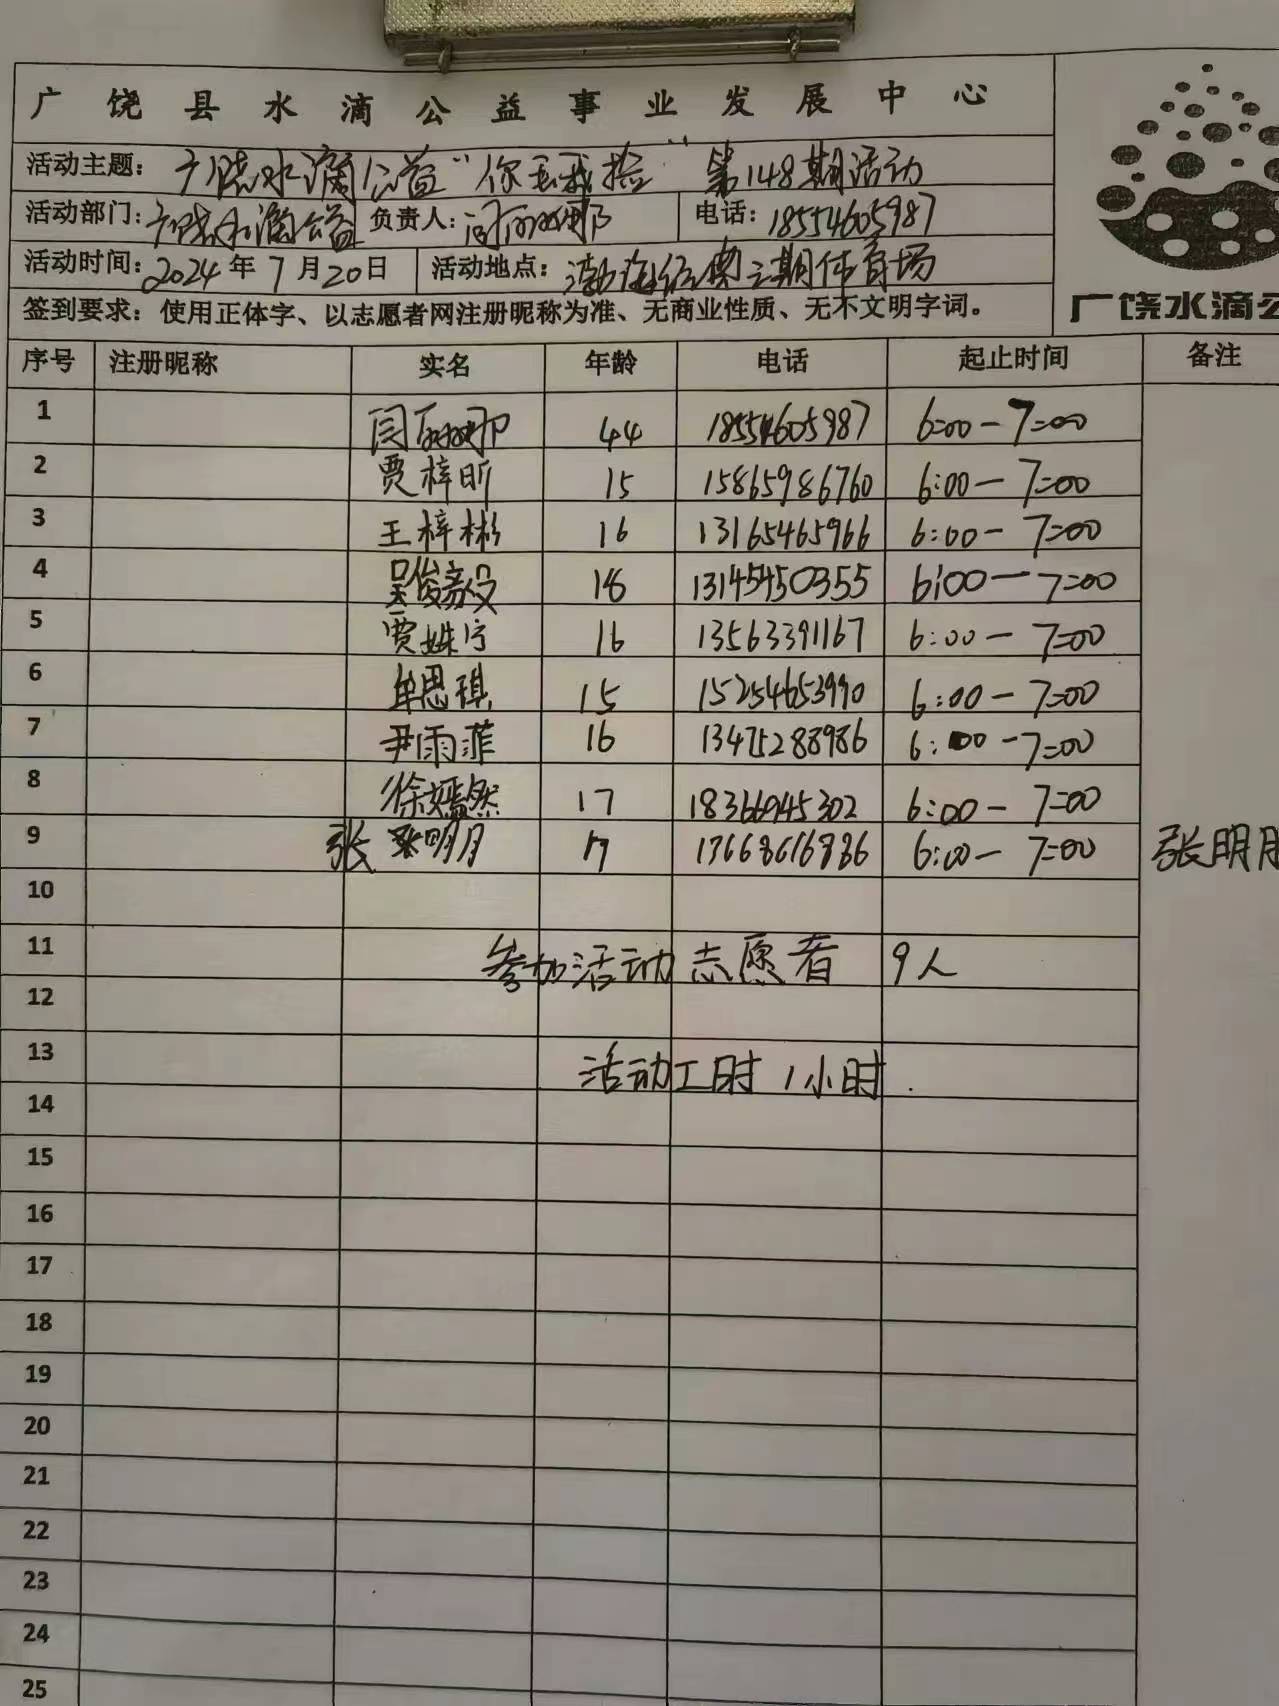 广饶县水滴公益事业发展中心
活动主题：广饶水滴公益"你丢我捡" 第148期活动
活动部门：广饶水滴公益 负责人：闫丽娜 电话：18554605987
活动时间：2024年7月20日 活动地点：渤海经典三期体育场
签到要求：使用正体字、以志愿者网注册昵称为准、无商业性质、无不文明字词。
广饶水滴公
序号 注册昵称 实名 年龄 电话 起止时间 备注
1 闫丽娜 44 18554605987 6:00-7:00
2 贾梓昕 15 15865986760 6:00-7:00
3 王梓彬 16 13165465966 6:00-7:00
4 吴俊毅 16 13145450355 6:00-7:00
5 贾姝宁 16 13563391167 6:00-7:00
6 牟思琪 15 15254653990 6:00-7:00
7 尹雨菲 16 13475288986 6:00-7:00
8 徐嫣然 17 6:00-7:00
9 张 张明月 17 17668616886 6:00-7:00 张明月
10
11 参加活动志愿者 9人
12
13 活动工时 1小时.
14
15
16
17
18
19
20
21
22
23
24
25